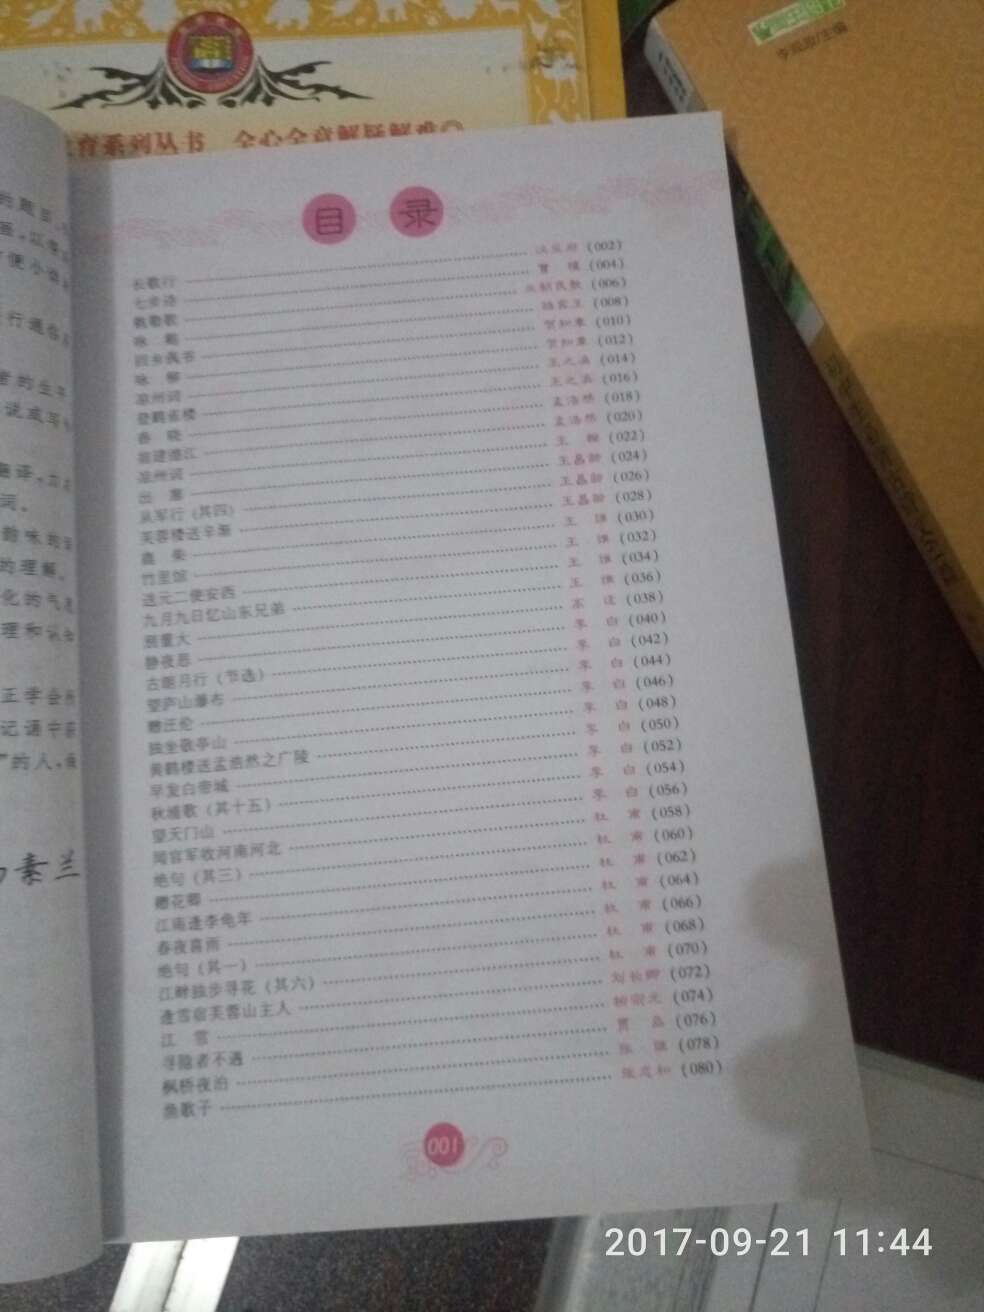 育系列丛书 全心全意解疑解难
李
主编
的题目
便小读
行通俗
者的生平
说或写
翻译
词。
韵味的
的理解。
化的气
理和认知
正学会
记诵中
的人，
素兰
目 录
长歌行 汉乐府 (002)
七步诗 曹植 (004)
敕勒歌 北朝民歌 (006)
咏 鹅 骆宾王 (008)
回乡偶书 贺知章 (010)
咏 柳 贺知章 (012)
凉州词 王之涣 (014)
登鹳雀楼 王之涣 (016)
春 晓 孟浩然 (018)
宿建德江 孟浩然 (020)
凉州词 王 翰 (022)
出 塞 王昌龄 (024)
从军行（其四） 王昌龄 (026)
芙蓉楼送辛渐 王昌龄 (028)
鹿 柴 王 维 (030)
竹里馆 王 维 (032)
送元二使安西 王 维 (034)
九月九日忆山东兄弟 王 维 (036)
别董大 高 适 (038)
静夜思 李 白 (040)
古朗月行（节选） 李 白 (042)
望庐山瀑布 李 白 (044)
赠汪伦 李 白 (046)
独坐敬亭山 李 白 (048)
黄鹤楼送孟浩然之广陵 李 白 (050)
早发白帝城 李 白 (052)
秋浦歌（其十五） 李 白 (054)
望天门山 李 白 (056)
闻官军收河南河北 杜 甫 (058)
绝句（其三） 杜 甫 (060)
赠花卿 杜 甫 (062)
江南逢李龟年 杜 甫 (064)
春夜喜雨 杜 甫 (066)
绝句（其一） 杜 甫 (068)
江畔独步寻花（其六） 杜 甫 (070)
逢雪宿芙蓉山主人 刘长卿 (072)
江 雪 柳宗元 (074)
寻隐者不遇 贾 岛 (076)
枫桥夜泊 张 继 (078)
渔歌子 张志和 (080)
001
2017-09-21 11:44